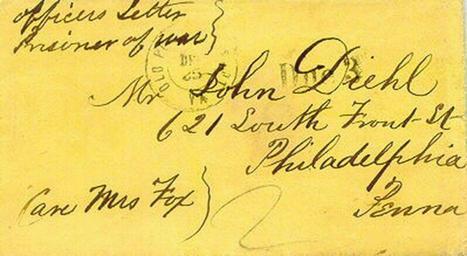 officers Letter
Prisoner of war
OLD P
DE
25
VA
Due 3
Mr John Diehl
621 South Front St
Philadelphia
Penna
Care Mrs Fox
2